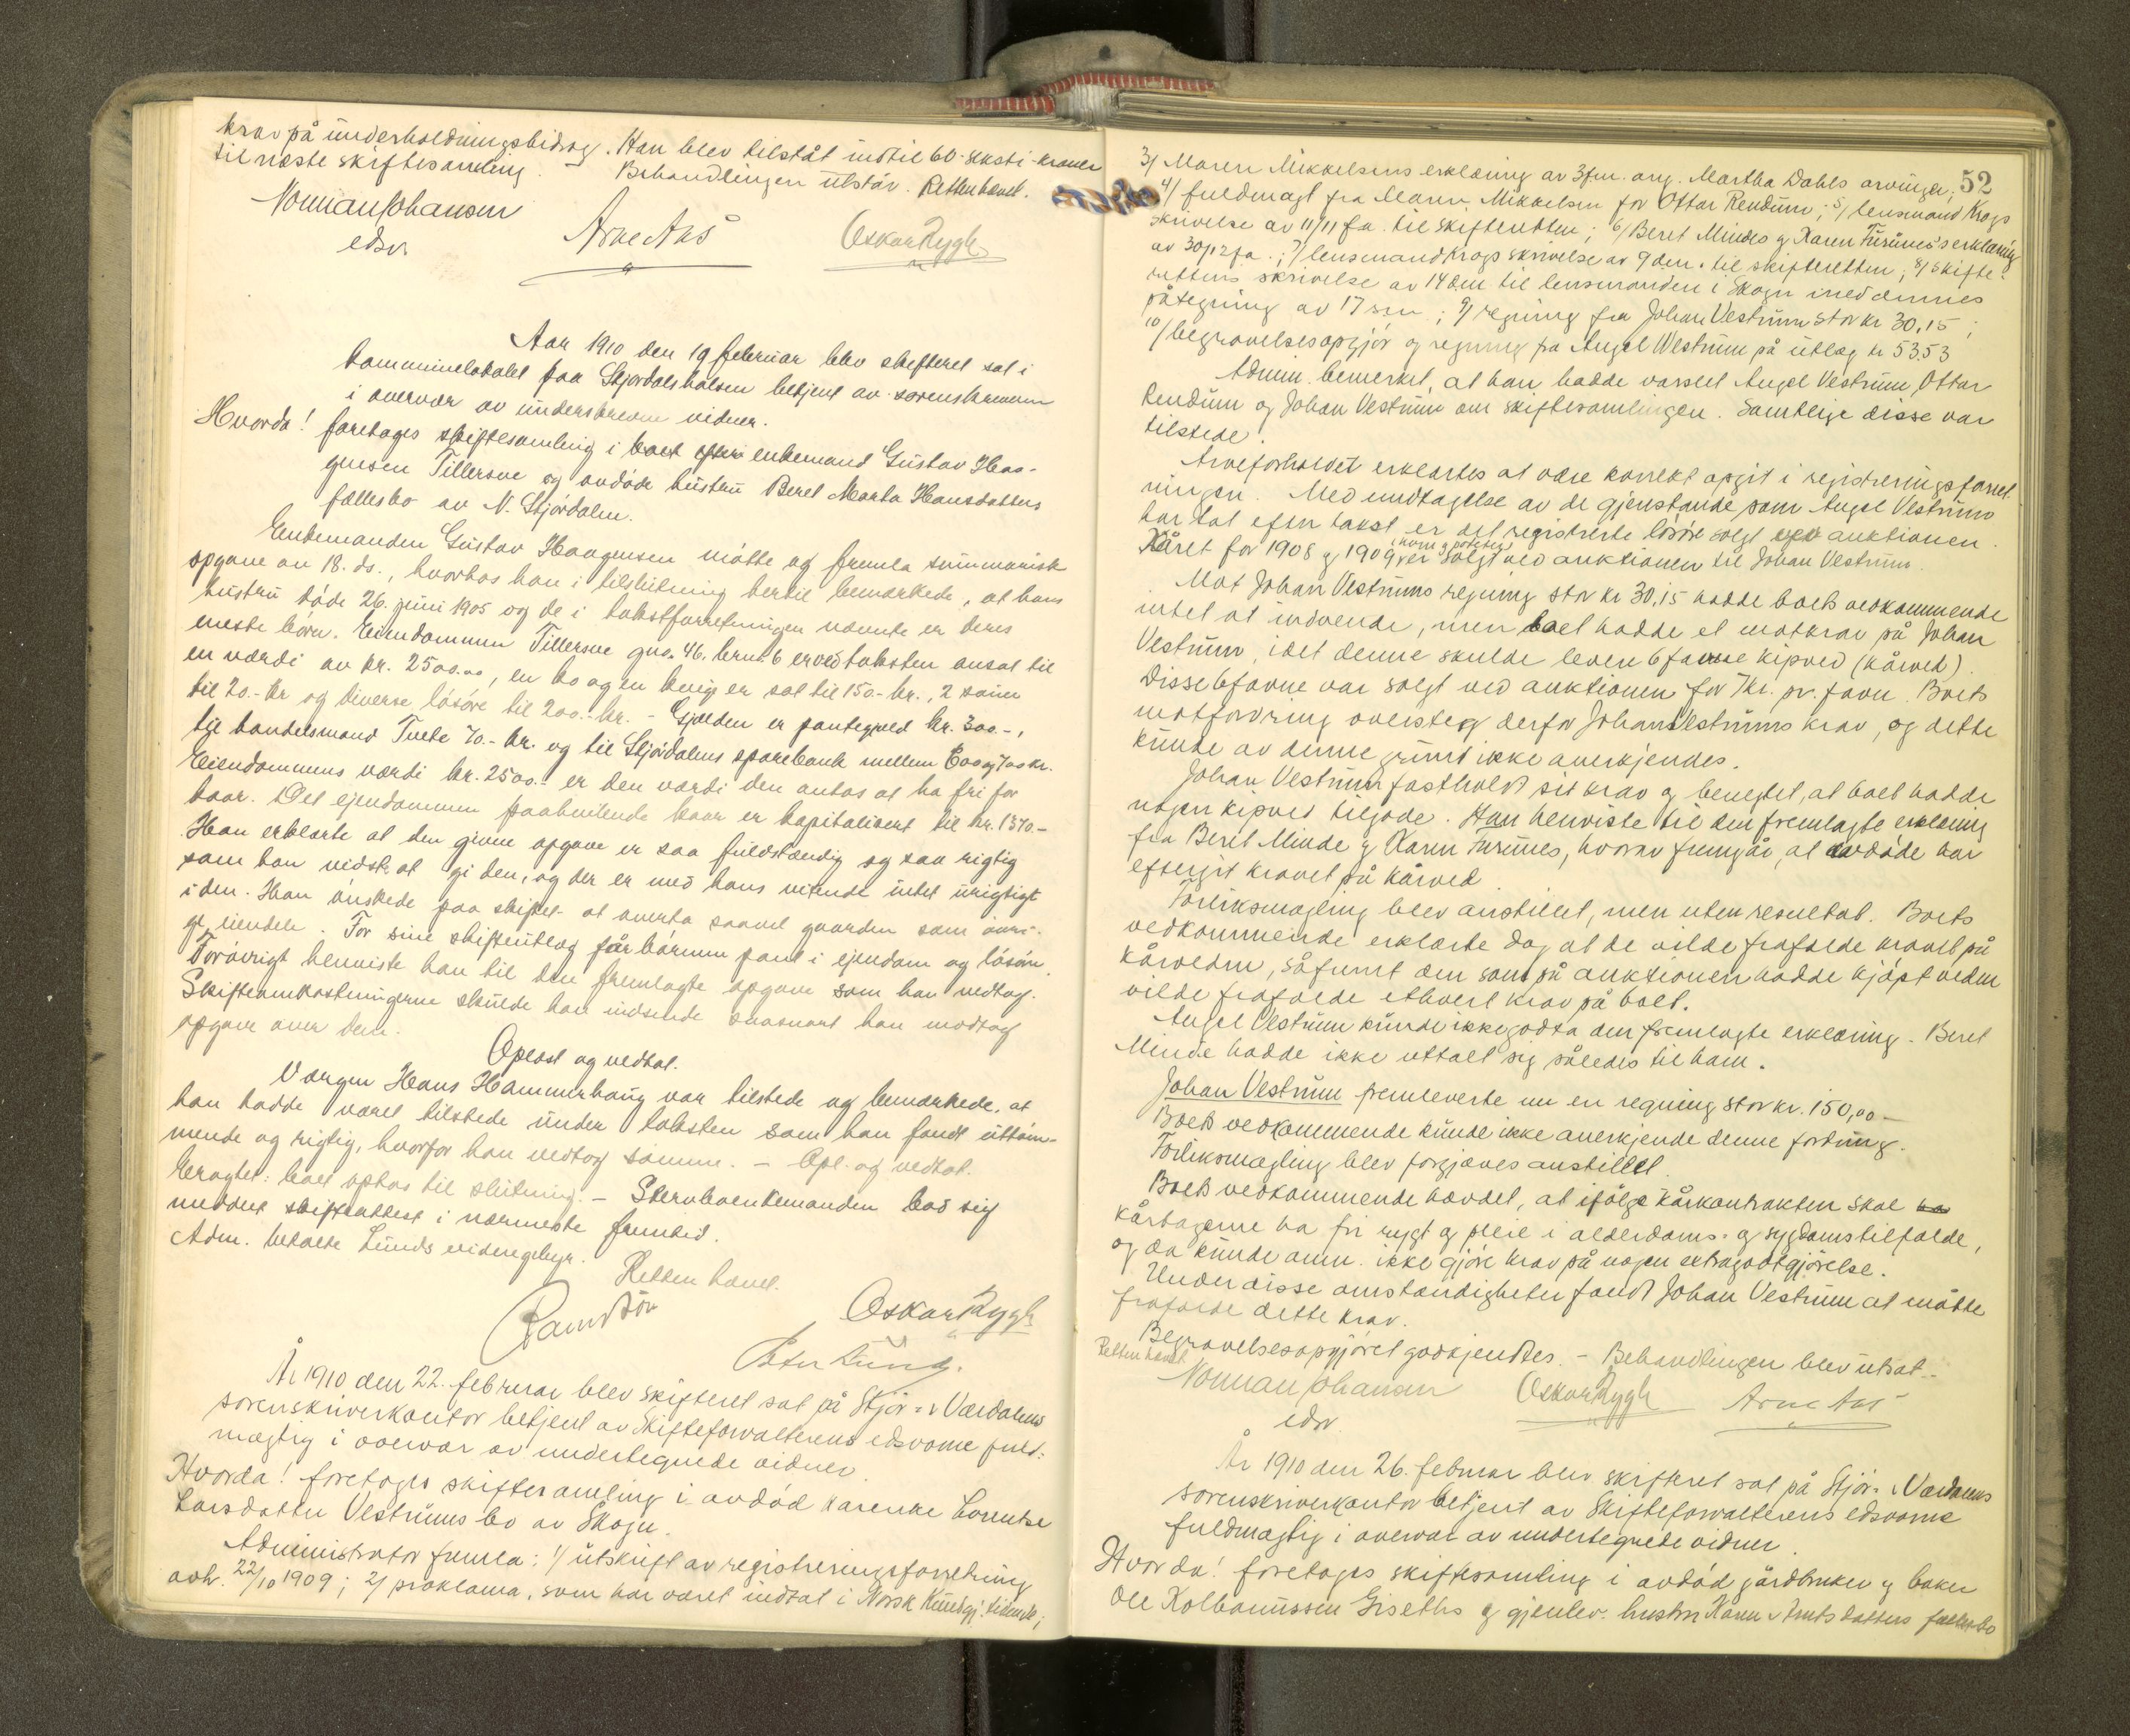 krav på underholdningsbidrag. Han blev tilståt indtil 60-seksti-kroner
til næste skiftesamling. – Behandlingen utstår. Retten hævet.
Norman Johansen
edsv.
Arne Aas
Oskar Rygh
Aar 1910 den 19 februar blev skifteret sat i
kommunelokalet paa Stjørdalshalsen betjent av sorenskriveren
i overvær av underskrevne vidner.
Hvorda! foretages skiftesamling i boet efter enkemand Gustav Haa-
gensen Tillersve og avdøde hustru Beret Marta Hansdatters
fællesbo av N. Stjørdalen.
Enkemanden Gustav Haagensen møtte og fremla summarisk
opgave av 18. ds., hvorhos han i tilslutning hertil bemærkede, at hans
hustru døde 26. juni 1905 og de i takstforretningen nævnte er deres
eneste børn. Eiendommen Tillersve gno. 46, brno. 6 er ved taksten ansat til
en værdi av kr. 2500.00, en ko og en kvige er sat til 150.- kr., 2 sauer
til 20.- kr og diverse løsøre til 200.- kr. – Gjælden er pantegjeld kr. 300.-,
til handelsmand Tvete 70.- kr. og til Stjørdalens sparebank mellem 600 og 700 kr.
Eiendommens værdi kr. 2500.- er den værdi den antas at ha fri for
kaar. Det ejendommen paahvilende kaar er kapitalisert til kr. 1370.-
Han erklærte at den givne opgave er saa fuldstændig og saa rigtig
som han vidste at gi den, og der er med hans vitende intet urigtigt
i den. Han ønskede paa skiftet at overta saavel gaarden som øvri-
ge eiendele. For sine skifteutlæg får børnene pant i ejendom og løsøre.
Forøvrigt henviste han til den fremlagte opgave som han vedtog.
Skifteomkostningerne skulde han indsende saasnart han modtog
opgave over dem.
Oplæst og vedtat.
Værgen Hans Hammerhaug var tilstede og bemærkede, at
han hadde været tilstede under taksten som han fandt uttøm-
mende og rigtig, hvorfor han vedtog samme. – Opl. og vedtat.
Eragtet: boet optas til slutning. – Stervboenkemanden bad sig
meddelt skifteattest i nærmeste fremtid.
Adm. betalte Lunds vidnegebyr.
Retten hævet.
Oskar Rygh
Peter Lund.
År 1910 den 22. februar blev skifteret sat på Stjør- & Værdalens
sorenskriverkontor betjent av Skifteforvalterens edsvorne fuld-
mægtig i overvær av undertegnede vidner.
Hvorda! foretages skiftesamling i avdød Karenke Lorentse
Larsdatter Vestrums bo av Skogn.
Administrator fremla: 1/ utskrift av registreringsforretning
avh. 22/10 1909; 2/ proklama, som har været indtat i Norsk Kundgj. tidende;
52
3/ Maren Mikkelsens erklæring av 3 f.m. ang. Martha Dahls arvinger;
4/ fuldmagt fra Maren Mikkelsen for Ottar Rendum; 5/ lensmand Krogs
skrivelse av 11/11 f.a. til skifteretten; 6/ Beret Mindes & Karen Furunes's erklæring
av 30/12 f.a.; 7/ lensmand Krogs skrivelse av 9 d.m. til skifteretten; 8/ Skifte-
rettens skrivelse av 14 d.m. til lensmanden i Skogn med dennes
påtegning av 17 s.m.; 9/ regning fra Johan Vestrum stor kr 30,15;
10/ begravelsesopgjør og regning fra Angel Vestrum på utlæg kr 53.53
Admin. bemerket, at han hadde varslet Angel Vestrum, Ottar
Rendum og Johan Vestrum om skiftesamlingen. Samtlige disse var
tilstede.
Arveforholdet erklærtes at være korrekt opgit i registreringsforret-
ningen. Med undtagelse av de gjenstande som Angel Vestrum
har tat efter takst er det registrerte løsøre solgt ved auktionen.
Kåret for 1908 & 1909 (korn & poteter) er solgt ved auktionen til Johan Vestrum.
Mot Johan Vestrums regning stor kr 30,15 hadde boets vedkommende
intet at indvende, men boet hadde et motkrav på Johan
Vestrum, idet denne skulde levere 6 favne kipved (kårved).
Disse 6 favne var solgt ved auktionen for 7 kr. pr. favn. Boets
motfordring oversteg derfor Johan Vestrums krav, og dette
kunde av denne grund ikke anerkjendes.
Johan Vestrum fastholdt sit krav & benegtet, at boet hadde
nogen kipved tilgode. Han henviste til den fremlagte erklæring
fra Beret Minde & Karen Furunes, hvorav fremgår, at avdøde har
eftergit kravet på kårved.
Forliksmægling blev anstillet, men uten resultat. Boets
vedkommende erklærte dog at de vilde frafalde kravet på
kårveden, såfremt den som på auktionen hadde kjøpt veden
vilde frafalde ethvert krav på boet.
Angel Vestrum kunde ikke godta den fremlagte erklæring. Beret
Minde hadde ikke uttalt sig således til ham.
Johan Vestrum fremleverte nu en regning stor kr. 150,00 –
Boets vedkommende kunde ikke anerkjende denne fordring.
Forliksmægling blev forgjæves anstillet.
Boets vedkommende hævdet, at ifølge kårkontrakten skal
kårtagerne ha fri røgt & pleie i alderdoms- & sygdomstilfælde,
og da kunde ann. ikke gjøre krav på nogen extragodtgjørelse.
Under disse omstændigheter fandt Johan Vestrum at måtte
frafalde dette krav.
Begravelsesopgjøret godkjendtes. – Behandlingen blev utsat. –
Retten hævet.
Norman Johansen
edsv.
Oskar Rygh
Arne Aas
År 1910 den 26. februar blev skifteret sat på Stjør- & Værdalens
sorenskriverkontor betjent av Skifteforvalterens edsvorne
fuldmægtig i overvær av undertegnede vidner.
Hvorda! foretages skiftesamling i avdød gårdbruker & baker
Ole Kolbanussen Giseths & gjenlev. hustru Karen Arntsdatters fællesbo